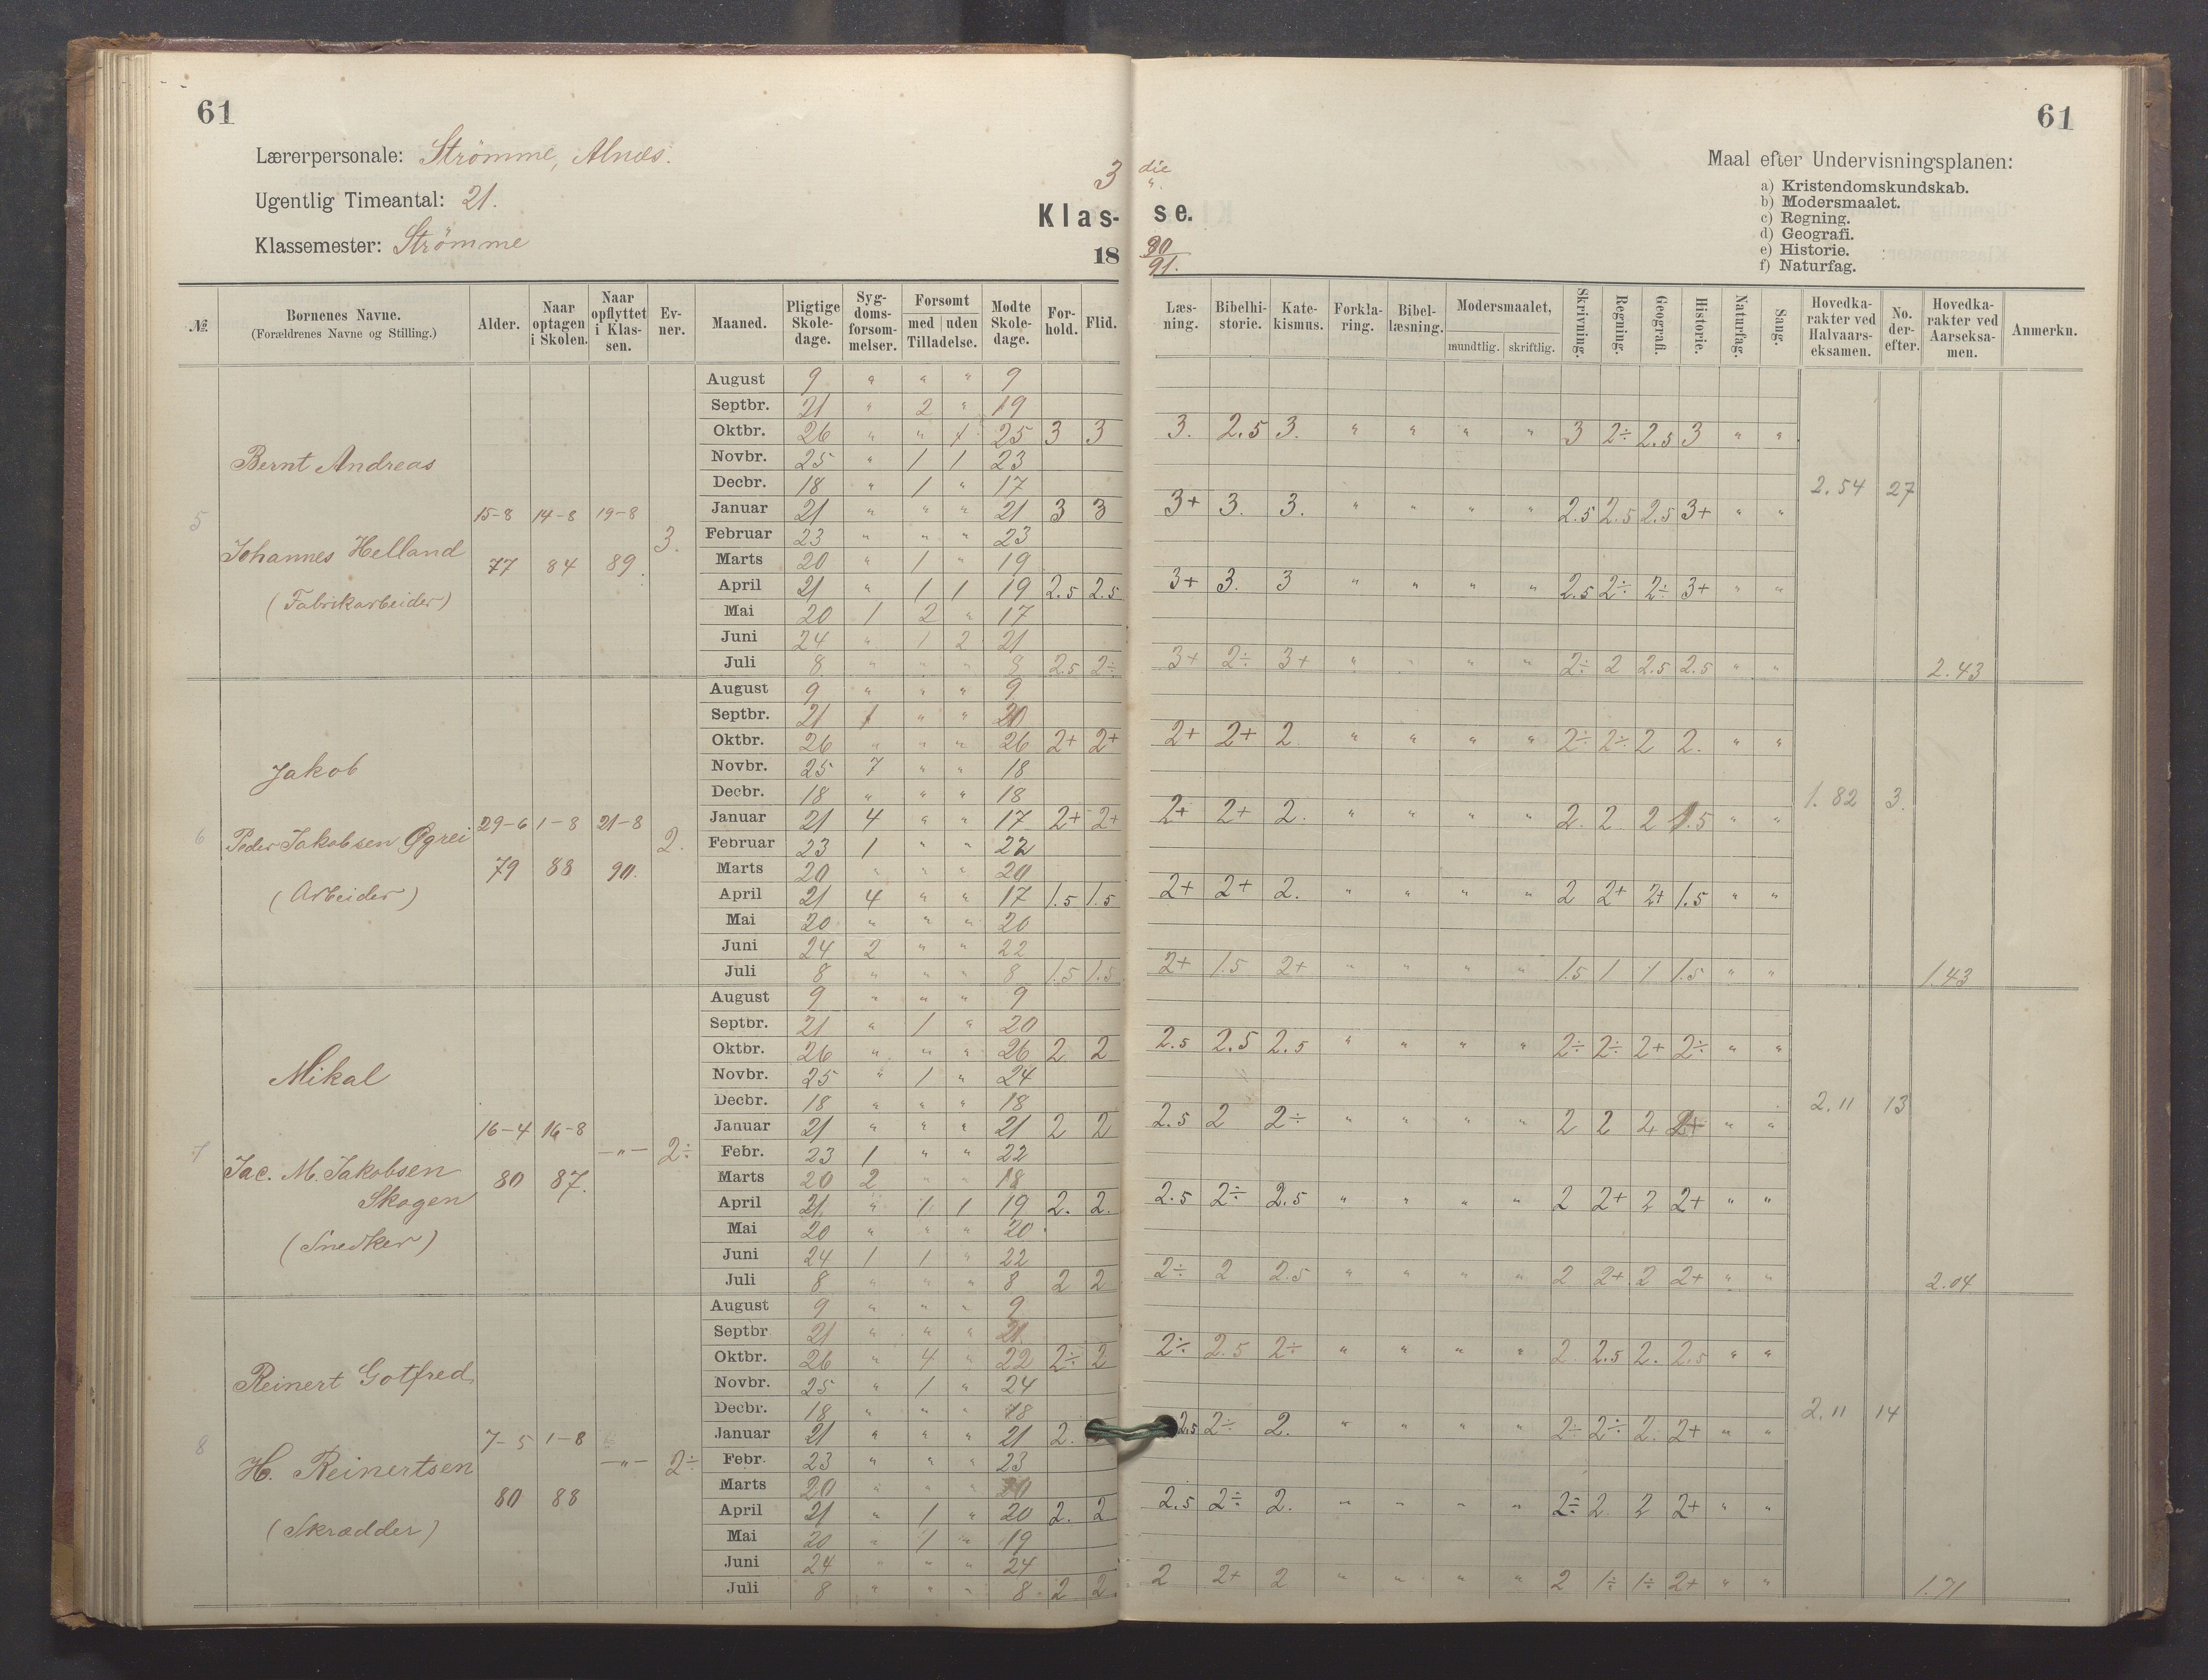 61
61
Lærerpersonale: Strömme, Alnæs.
Ugentlig Timeantal: 21.
Klassemester: Strömme
3 die
Klas- se.
18 90/91.
Maal efter Undervisningsplanen:
a) Kristendomskundskab.
b) Modersmaalet.
c) Regning.
d) Geografi.
e) Historie.
f) Naturfag.
№ | Børnenes Navne. (Forældrenes Navne og Stilling.) | Alder. | Naar optagen i Skolen. | Naar opflyttet i Klassen. | Evner. | Maaned. | Pligtige Skoledage. | Sygdomsforsømmelser. | Forsømt med uden Tilladelse. | Mødte Skoledage. | Forhold. | Flid. | Læsning. | Bibelhistorie. | Katekismus. | Forklaring. | Bibellæsning. | Modersmaalet, mundtlig. skriftlig. | Skrivning. | Regning. | Geografi. | Historie. | Naturfag. | Sang. | Hovedkarakter ved Halvaarseksamen. | No. derefter. | Hovedkarakter ved Aarseksamen. | Anmerkn.
5 Bernt Andreas
Johannes Helland
(Fabrikarbeider)
15-8 77 | 14-8 84 | 19-8 89 | 3.
August 9 " " " 9
Septbr. 21 " 2 " 19
Oktbr. 26 " " 1 25 3 3 | 3. 2.5 3. " " " " 3 2÷ 2.5 3 " "
Novbr. 25 " 1 1 23
Decbr. 18 " 1 " 17 | 2.54 27
Januar 21 " " " 21 3 3 | 3+ 3. 3. " " " " 2.5 2.5 2.5 3+ " "
Februar 23 " " " 23
Marts 20 " 1 " 19
April 21 " 1 1 19 2.5 2.5 | 3+ 3. 3 " " " " 2.5 2÷ 2÷ 3+ " "
Mai 20 1 2 " 17
Juni 24 " 1 2 21
Juli 8 " " " 8 2.5 2÷ | 3+ 2÷ 3+ " " " " 2÷ 2 2.5 2.5 " " 2.43
6 Jakob
Peder Jakobsen Øgrei
(Arbeider)
29-6 79 | 1-8 88 | 21-8 90. | 2.
August 9 " " " 9
Septbr. 21 1 " " 20
Oktbr. 26 " " " 26 2+ 2+ | 2+ 2+ 2 " " " " 2÷ 2÷ 2 2. " "
Novbr. 25 7 " " 18
Decbr. 18 " " " 18 | 1.82 3.
Januar 21 4 " " 17 2+ 2+ | 2+ 2+ 2. " " " " 2. 2. 2 1.5 " "
Februar 23 1 " " 22
Marts 20 " " " 20
April 21 4 " " 17 1.5 1.5 | 2+ 2+ 2. " " " " 2 2+ 2+ 1.5 " "
Mai 20 " " " 20
Juni 24 2 " " 22
Juli 8 " " " 8 1.5 1.5 | 2+ 1.5 2+ " " " " 1.5 1 1 1.5 " " 1.43
7 Mikal
Jac. M. Jakobsen
Skogen
(Snedker)
16-4 80 | 16-8 87. | —"— | 2÷
August 9 " " " 9
Septbr. 21 " 1 " 20
Oktbr. 26 " " " 26 2 2 | 2.5 2.5 2.5 " " " " 2÷ 2÷ 2+ 2÷ " "
Novbr. 25 " 1 " 24
Decbr. 18 " " " 18 | 2.11 13
Januar 21 " " " 21 2 2 | 2.5 2 2÷ " " " " 2 2 2 2+ " "
Febr. 23 1 " " 22
Marts 20 2 " " 18
April 21 " 1 1 19 2. 2. | 2.5 2÷ 2.5 " " " " 2 2+ 2 2+ " "
Mai 20 " " " 20
Juni 24 1 1 " 22
Juli 8 " " " 8 2 2 | 2÷ 2 2.5 " " " " 2 2+ 2 2+ " " 2.04
8 Reinert Gotfred
H. Reinertsen
(Skrædder)
7-5 80 | 1-8 88 | —"— | 2÷
August 9 " " " 9
Septbr 21 " " " 21
Oktbr. 26 " 4 " 22 2÷ 2 | 2÷ 2.5 2÷ " " " " 2 2.5 2. 2.5 " "
Novbr. 25 " 1 " 24
Decbr. 18 " " " 18 | 2.11 14
Januar 21 " " " 21 2. | 2.5 2÷ 2. " " " " 2÷ 2÷ 2. 2+ " "
Febr. 23 " " " 23
Marts 20 " " " 20
April 21 " 1 " 20 2. 2 | 2.5 2÷ 2. " " " " 2÷ 2 2 2+ " "
Mai 20 " 1 " 19
Juni 24 " " " 24
Juli 8 " " " 8 2 2 | 2 2+ 2 " " " " 2 1÷ 1÷ 2+ " " 1.71